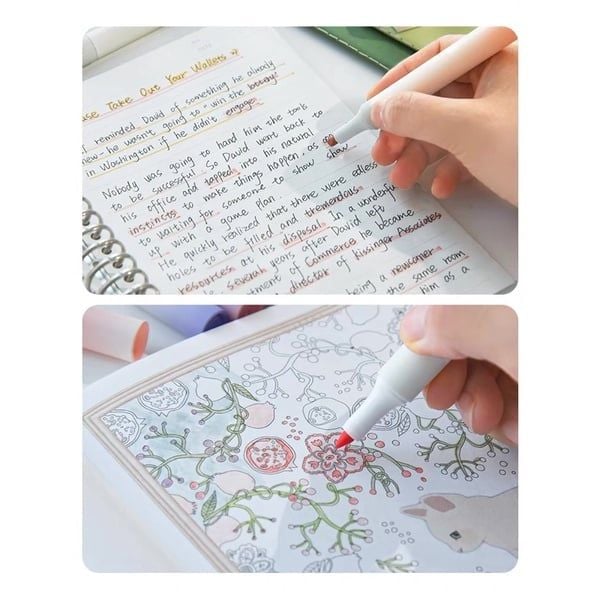 use Take Out Your Wallets
I reminded David of something he already
new - he wasn't going to "win the battery
in Washington if he didn't engage
Nobody was going to hand him the tools
to be successful. So David went back to
his office and tapped into his natural
instincts to make things happen, as
to waiting for someone to show show
up with a game plan.
He quickly realized that there were edless
holes to be filled and tremendous
resources at his disposal. In a wonderful
several years after David left
tment of Commerce he became
director of Kissinger Associates
being a newcomer
the same room
him as a